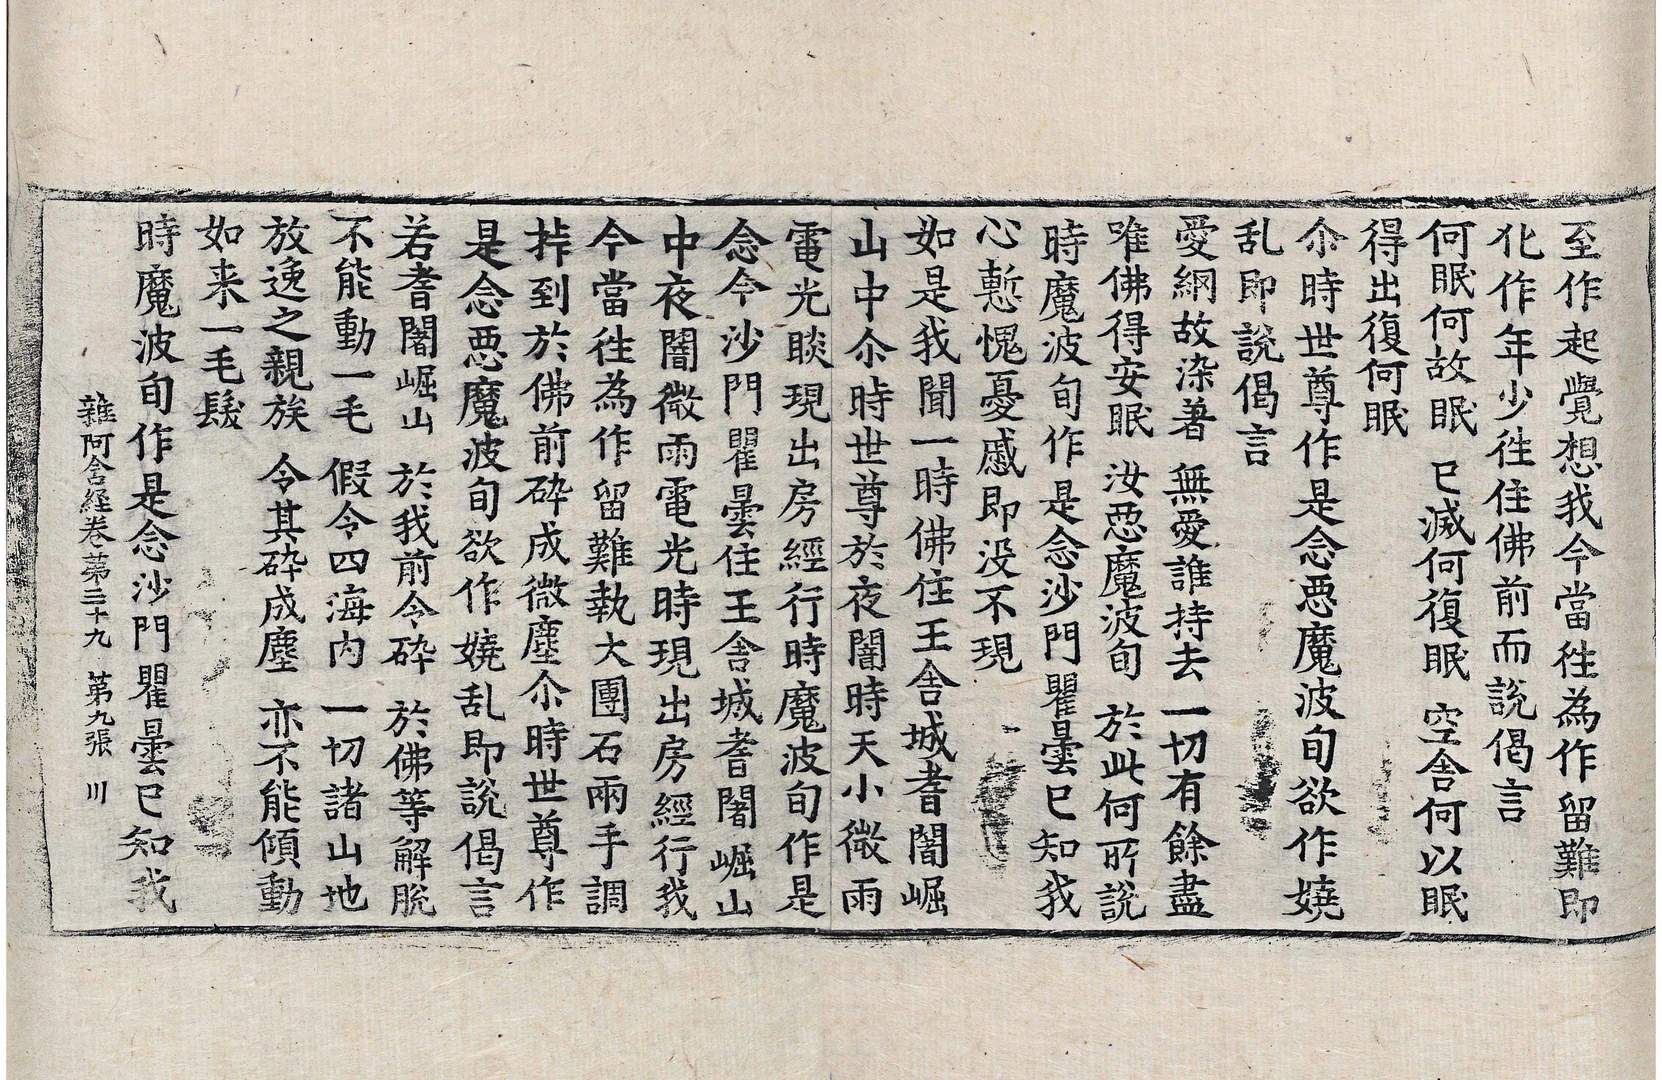 至作起覺想我今當徃為作留難即
化作年少徃住佛前而說偈言
何眠何故眠 已滅何復眠 空舎何以眠
得出復何眠
尒時世尊作是念悪魔波旬欲作嬈
乱即說偈言
愛網故染著 無愛誰持去 一切有餘盡
唯佛得安眠 汝惡魔波旬 於此何所說
時魔波旬作是念沙門瞿曇已知我
心慙愧憂慼即没不現
如是我聞一時佛住王舎城耆闍崛
山中尒時世尊於夜闇時天小微雨
電光睒現出房經行時魔波旬作是
念今沙門瞿曇住王舎城耆闍崛山
中夜闇微雨電光時現出房經行我
今當徃為作留難執大團石兩手調
挊到於佛前碎成微塵尒時世尊作
是念悪魔波旬欲作嬈乱即說偈言
若耆闍崛山 於我前令碎 於佛等解脫
不能動一毛 假令四海内 一切諸山地
放逸之親族 令其碎成塵 亦不能傾動
如来一毛髮
時魔波旬作是念沙門瞿曇已知我
雜阿含経卷苐三十九 第九張 川